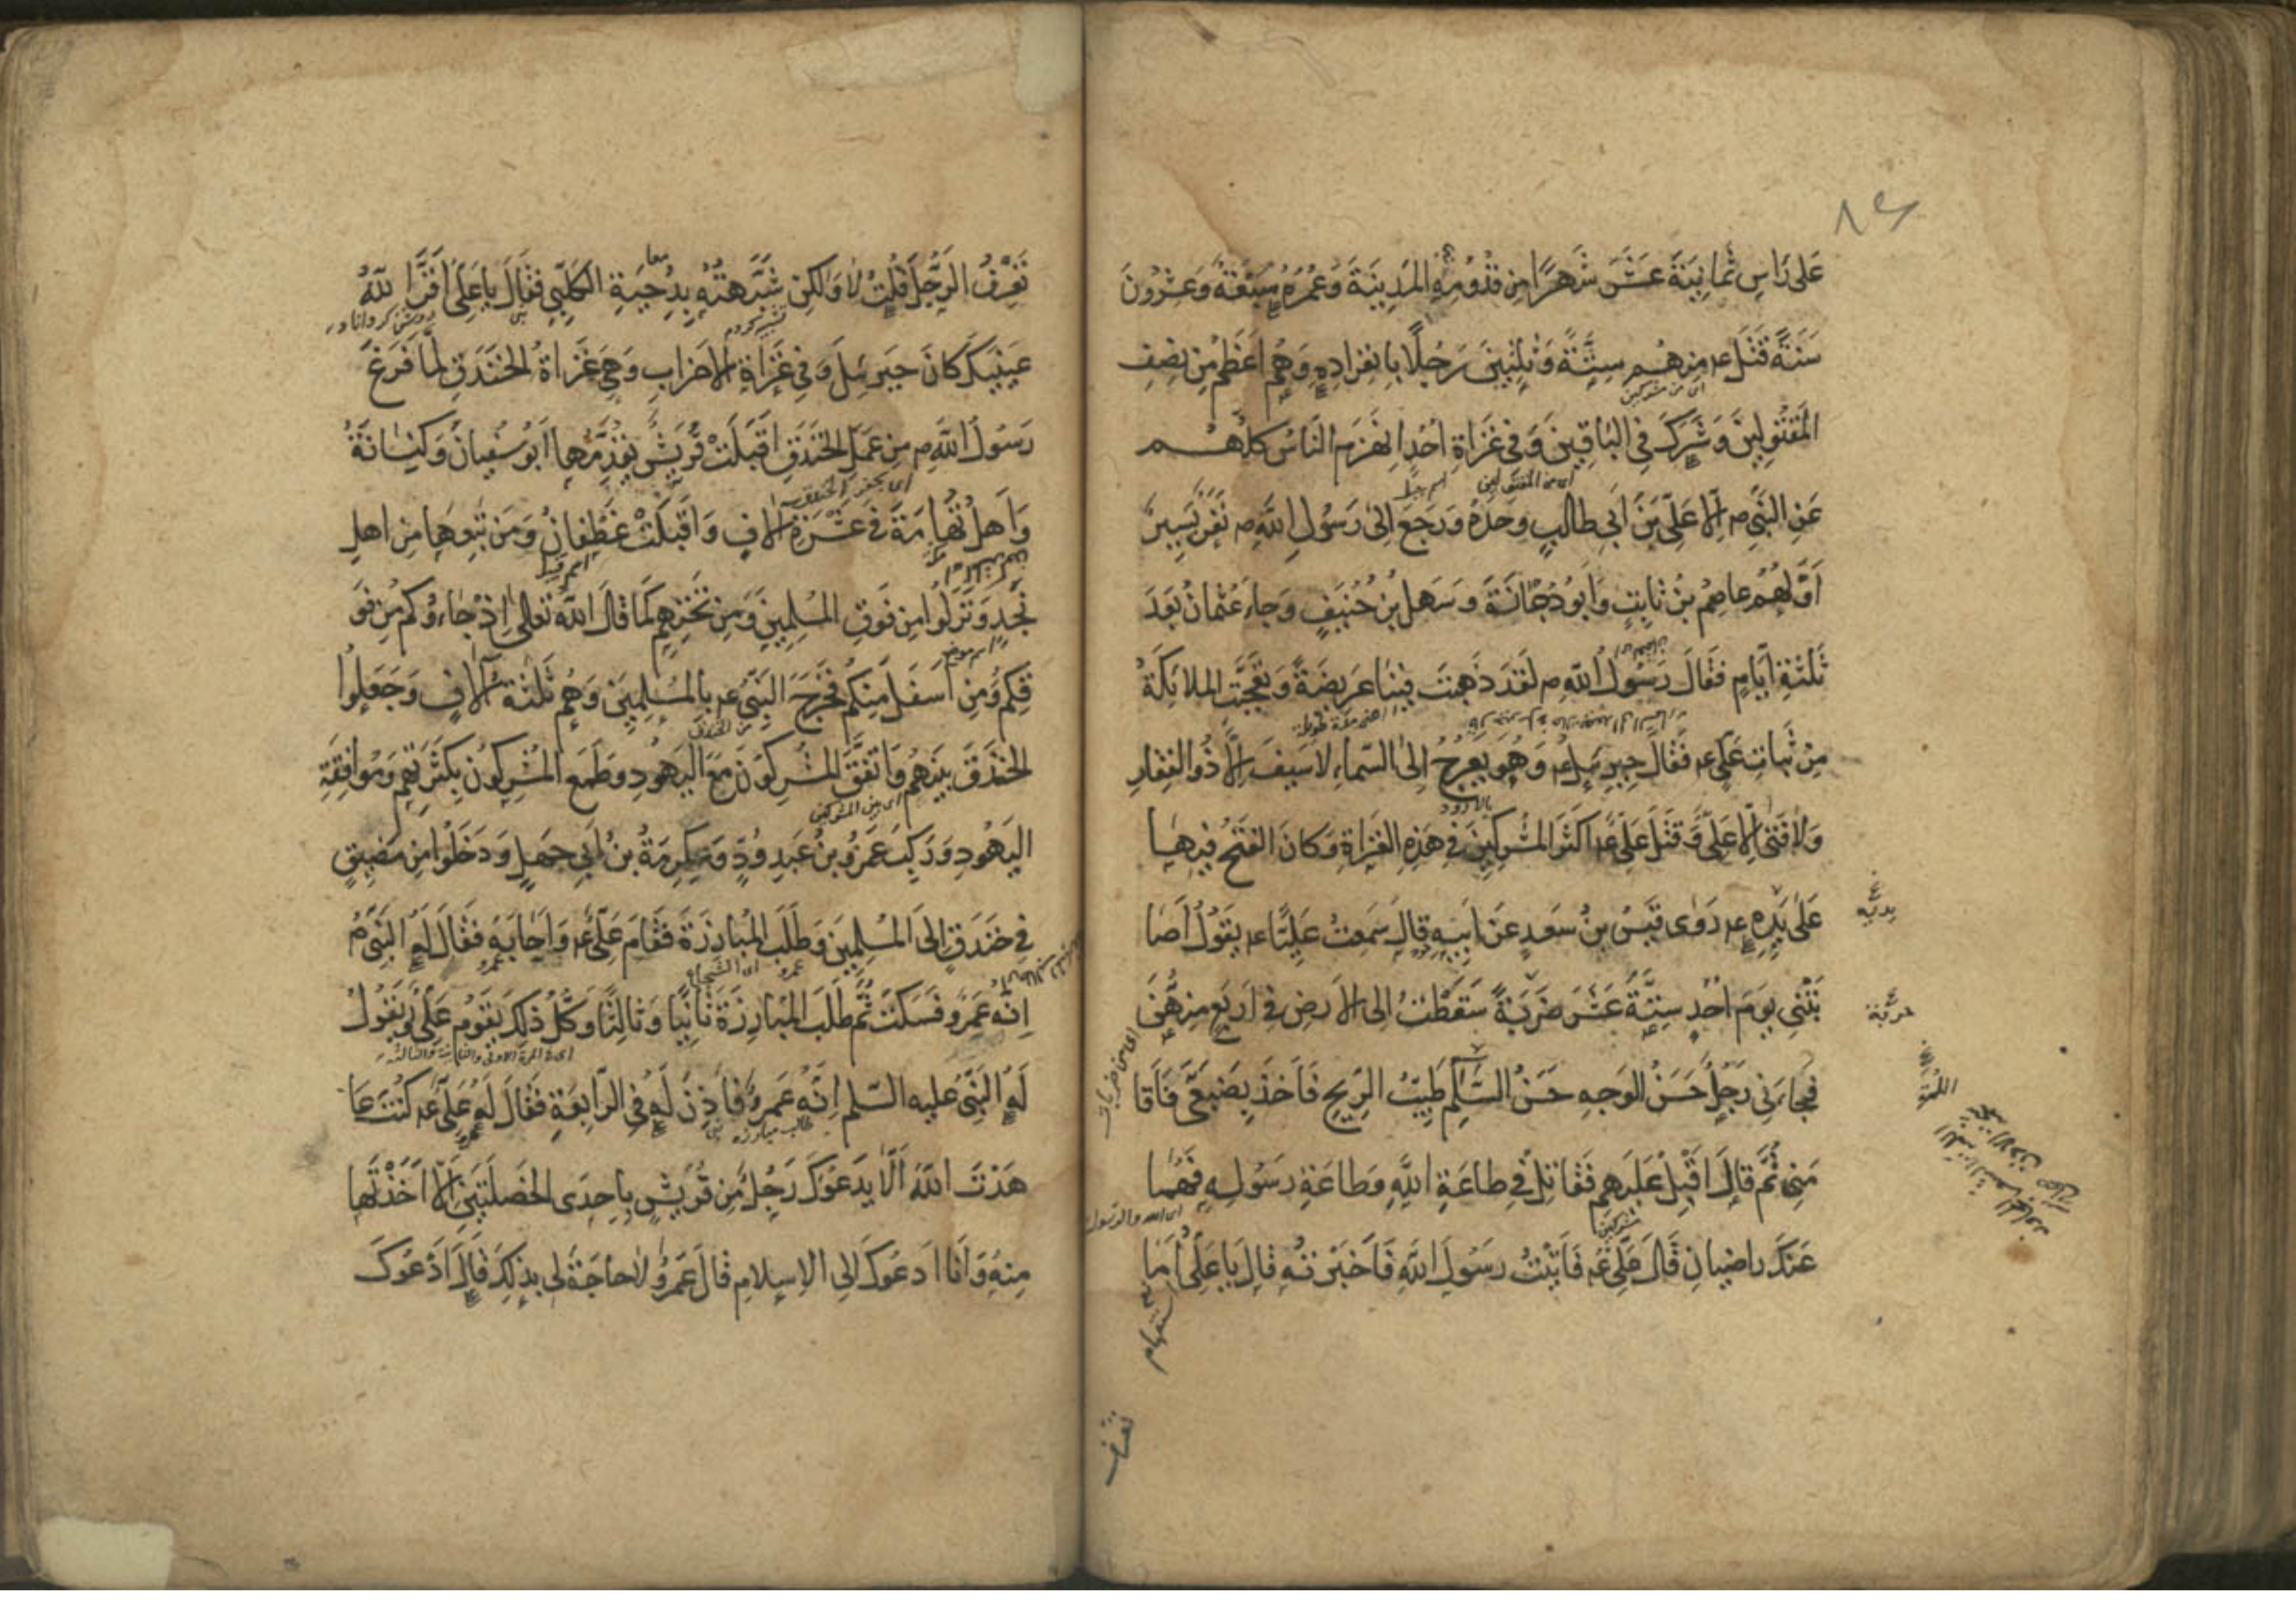 ٨٤
عَلى رَاسِ ثَمانِيَةَ عَشَرَ شَهرًا مِن قُدُومِهِ المَدِينَةَ وَعُمُرُهُ سَبْعَةٌ وَعِشْرُونَ
سَنَةً قَتَلَ عه مِنهُم سِتَّةً وَثَلٰثِينَ رَجُلًا بِانفِرادِهِ وَهُم اَعْظَمُ مِن نِصفِ
اى من مشركين
المَقتُولِينَ وَشَرِكَ فِى البَاقِينَ وَفى غَزاةِ اُحُدٍ اِنْهَزَمَ النّاسُ كُلُّهُم
اى من المقتولين
عَنِ النَّبِىِّ م اِلّا عَلِىَّ بنَ اَبى طالِبٍ وَحدَهُ وَرَجَعَ اِلىٰ رَسُولِ اللّٰهِ م نَفَرٌ يَسِيرٌ
اَوَّلُهُم عاصِمُ بنُ ثابِتٍ وَاَبُو دُجَانَةَ وَسَهلُ بنُ حُنَيفٍ وَجاءَ عُثمانُ بَعدَ
ثَلٰثَةِ اَيّامٍ فَقالَ رَسُولُ اللّٰهِ م لَقَد ذَهَبتَ فِينا عَرِيضَةً وَتَعَجَّبَت المَلائِكَةُ
مِن ثَباتِ عَلِىٍّ عه فَقالَ جِبرِئيلُ عه وَهُوَ يَعرُجُ اِلىٰ السَّماءِ لا سَيفَ اِلّا ذُوالفِقارِ
وَلا فَتىٰ اِلّا عَلِىٌّ وَقَتَلَ عَلِىٌّ عه اَكثَرَ المُشرِكِينَ فى هٰذِهِ الغَزاةِ وَكانَ الفَتحُ فِيها
عَلى يَدِهِ عه رَوٰى قَيسُ بنُ سَعدٍ عَن اَبِيهِ قالَ سَمِعتُ عَلِيًّا عه يَقُولُ اَصا
بَتْنِى يَومَ اُحُدٍ سِتَّةَ عَشَرَ ضَربَةً سَقَطتُ اِلى الاَرضِ فى اَربَعٍ مِنهُنَّ
فَجاءَنِى رَجُلٌ حَسَنُ الوَجهِ حَسَنُ اللَّمَّةِ طَيِّبُ الرِّيحِ فَاَخَذَ بِضَبعَىَّ فَاَقا
مَنِى ثُمَّ قالَ اَقبِل عَلَيهِم فَقاتِل فى طاعَةِ اللّٰهِ وَطاعَةِ رَسُولِهِ فَهُما
اى الله والرّسول
عَنكَ راضِيانِ قالَ عَلِىٌّ عه فَاَتَيتُ رَسُولَ اللّٰهِ فَاَخبَرتُهُ قالَ يا عَلِىُّ اَما
تعرف
تَعْرِفُ الرَّجُلَ قُلْتُ لا وَلٰكِن شَبَّهتُهُ بِدِحْيَةِ الكَلْبِىِّ فَقالَ يا عَلِىُّ اَقَرَّ اللّٰهُ
تشبيه كردم
عَينَيكَ كانَ جَبرَئِيلَ وَفى غَزاةِ الاَحزابِ وَهِىَ غَزاةُ الخَندَقِ لَمّا فَرَغَ
رَسُولُ اللّٰهِ م مِن عَمَلِ الخَندَقِ اَقبَلَتْ قُرَيشٌ يَقدُمُها اَبُو سُفيانَ وَكِنانَةُ
اى بحفر الخندق
وَاَهلُ تُهامَةَ فى عَشَرَةِ الافٍ وَاَقبَلَتْ غَطَفانُ وَمَن تَبِعَها مِن اَهلِ
نَجدٍ وَنَزَلُوا مِن فَوقِ المُسلِمِينَ وَمِن تَحتِهِم كَما قالَ اللّٰهُ تَعالىٰ اِذ جاءُوكُم مِن فَو
اسم موضع
قِكُم وَمِن اَسفَلَ مِنكُم فَخَرَجَ النَّبِىُّ عه بِالمُسلِمِينَ وَهُم ثَلٰثَةُ آلافٍ وَجَعَلُوا
الخَندَقَ بَينَهُم وَاتَّفَقَ المُشرِكُونَ مَعَ اليَهُودِ وَطَمَعَ المُشرِكُونَ بِكَثرَتِهِم وَمُوافَقَةِ
اى من المشركين
اليَهُودِ وَرَكِبَ عَمرُو بنُ عَبدِ وُدٍّ وَعِكرِمَةُ بنُ اَبى جَهلٍ وَدَخَلُوا مِن مَضِيقٍ
فى خَندَقٍ اِلىَ المُسلِمِينَ وَطَلَبَ المُبارَزَةَ فَقامَ عَلِىٌّ عه وَاَجابَهُ فَقالَ لَهُ النَّبِىُّ م
عمرو
اِنَّهُ عَمرٌو فَسَكَتَ ثُمَّ طَلَبَ المُبارَزَةَ ثانِيًا وَثالِثًا وَكُلَّ ذٰلِكَ يَقُومُ عَلِىٌّ وَيَقُولُ
اى فى المرة الاولى والثانية والثالثة
لَهُ النَّبِىُّ عليه السّلم اِنَّهُ عَمرٌو فَاَذِنَ لَهُ فى الرّابِعَةِ فَقالَ لَهُ عَلِىٌّ عه كُنتَ عا
طلب مبارزه
هَدْتَ اللّٰهَ اَلّا يَدعُوكَ رَجُلٌ مِن قُرَيشٍ بِاِحدَى الخَصلَتَينِ اِلّا اَخَذْتَها
مِنهُ وَاَنا اَدعُوكَ اِلى الاِسلامِ قالَ عَمرٌو لا حاجَةَ لى بِذٰلِكَ قالَ اَدعُوكَ